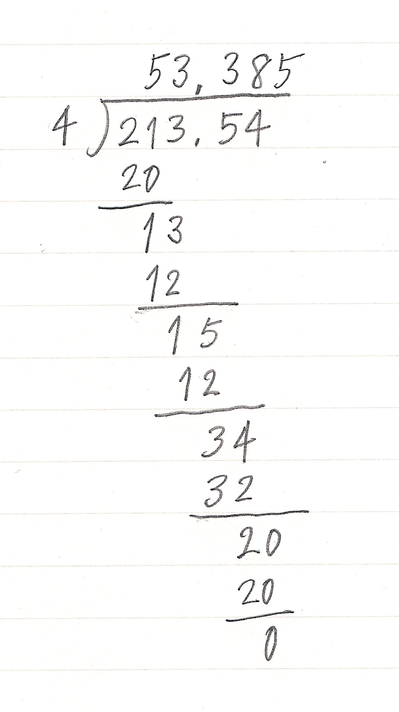 53,385
4)213.54
20
13
12
15
12
34
32
20
20
0